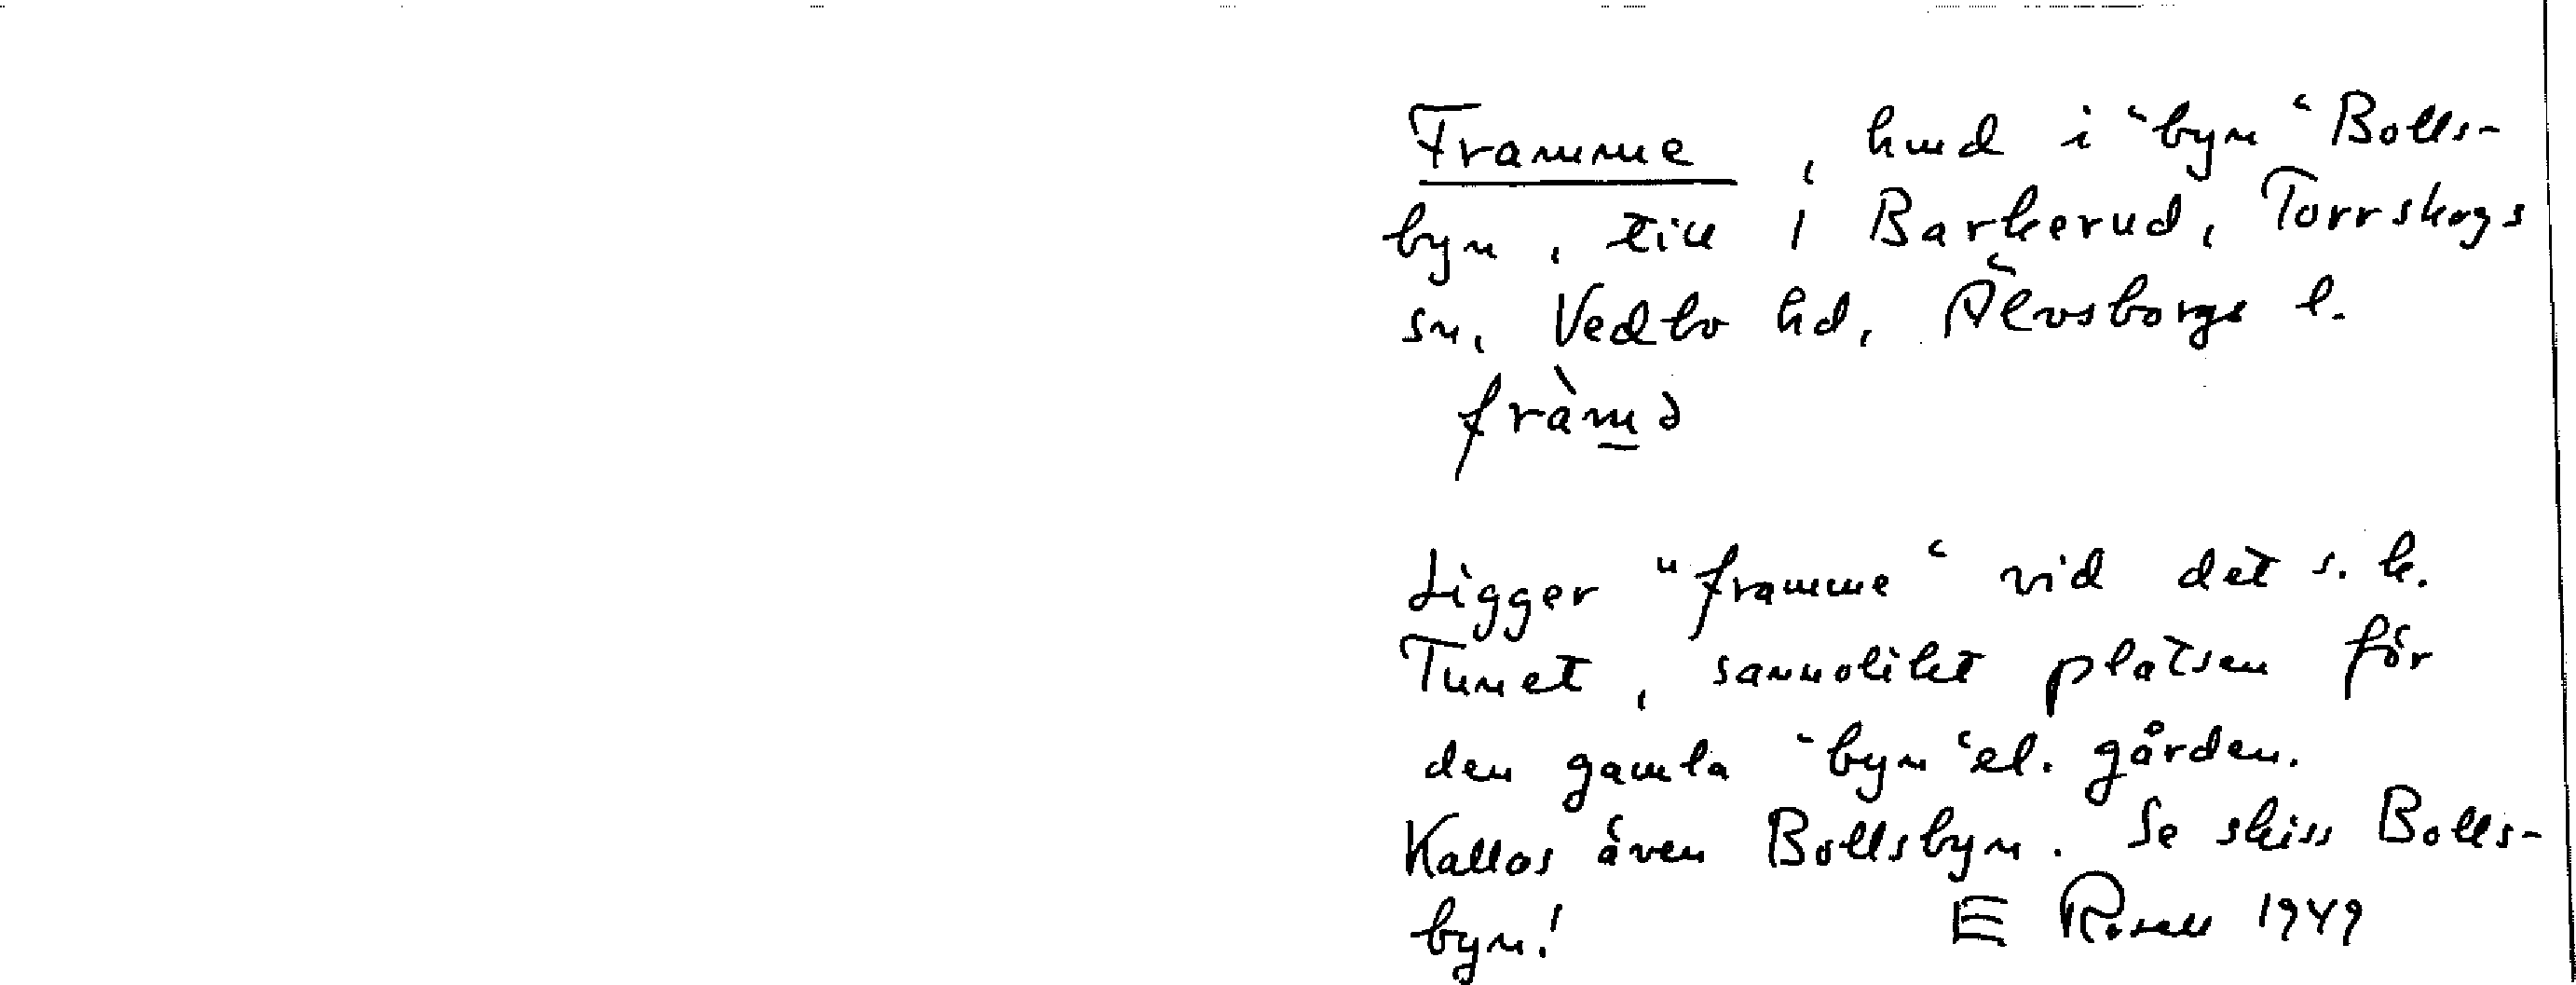 Framme, hmd i "byn" Bolls-
byn, till 1 Barkerud, Torrskogs
sn, Vedbo hd, Älvsborgs l.
fràm̲ə
Ligger "framme" vid det s.k.
Tunet, sannolikt platsen för
den gamla "byn" el. gården.
Kallas även Bollsbyn. Se skiss Bolls-
byn! E Rosell 1949